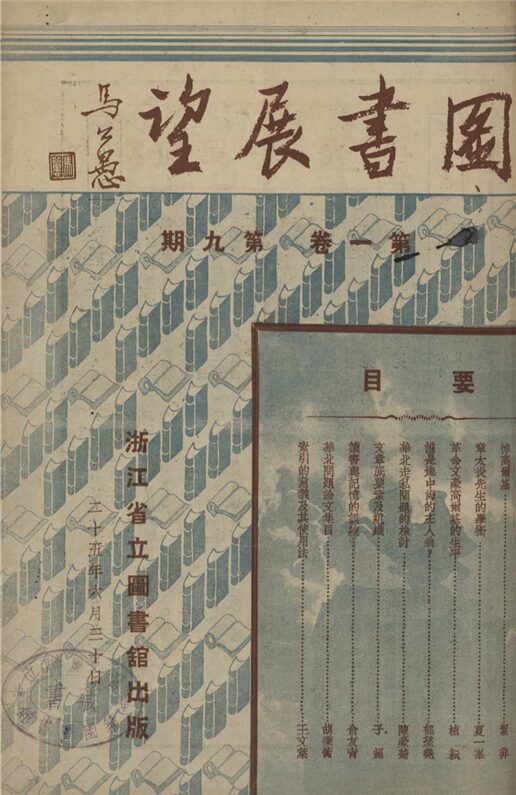 圖書展望
馬公愚
第一卷 第九期
要目
悼高爾基
章太炎先生的學術……夏一峯
革命文豪高爾基的生平……植耘
誰是地中海的主人翁?……郁望堯
華北走私問題的檢討……陳豪楚
文章底要素及組織……子韜
讀書與記憶的訓練……俞友清
華北問題論文集目……胡秉衡
索引的意義及其使用法……王文萊
浙江省立圖書館出版
二十五年六月三十日